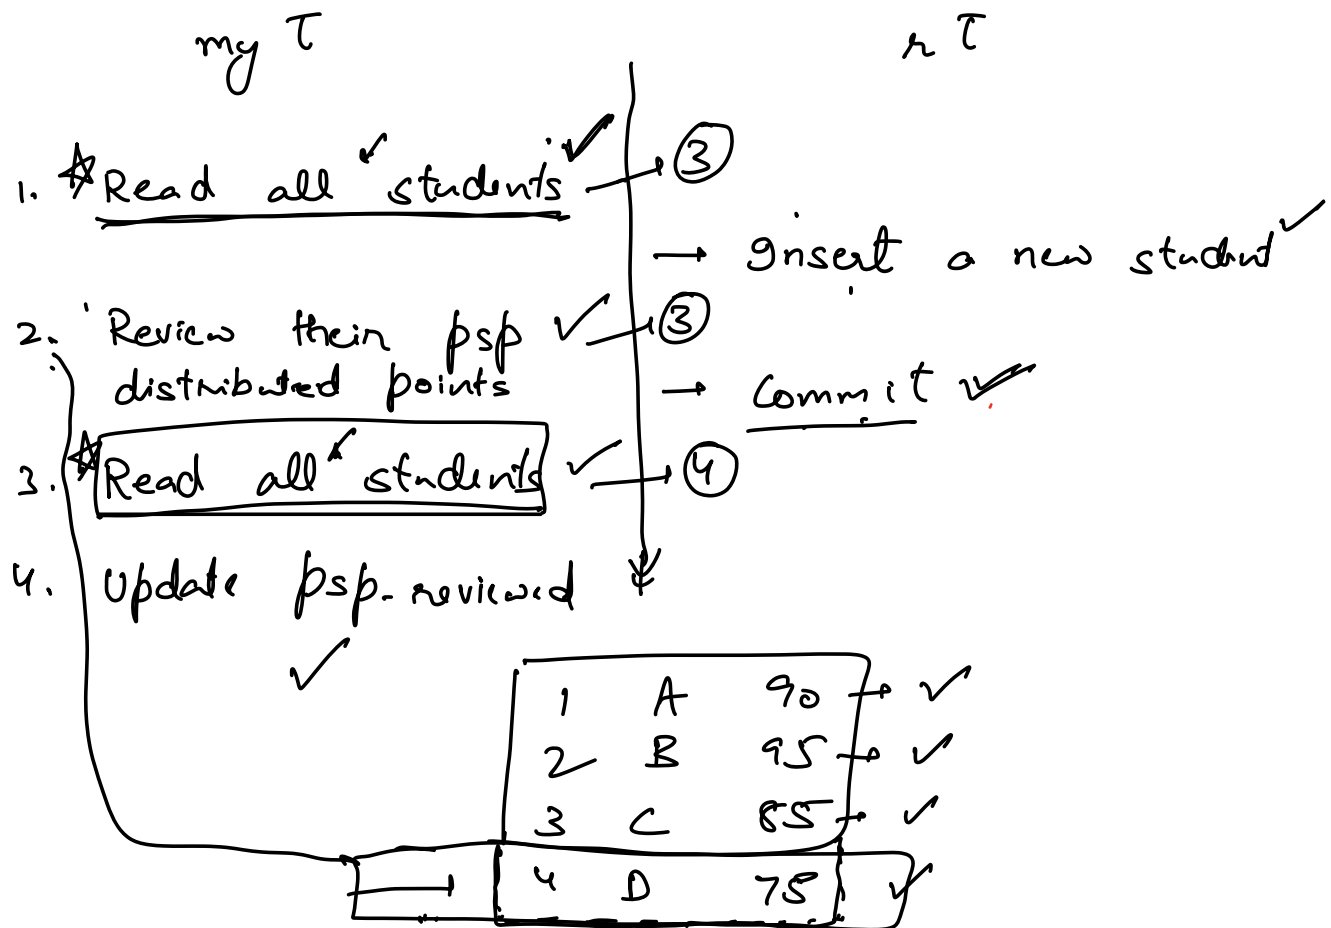 my T
r T
1. Read all students → ③
→ Insert a new student
2. Review their psp → ③
distributed points
→ Commit
3. Read all students → ④
4. Update psp-reviewed
1 A 90
2 B 95
3 C 85
4 D 75